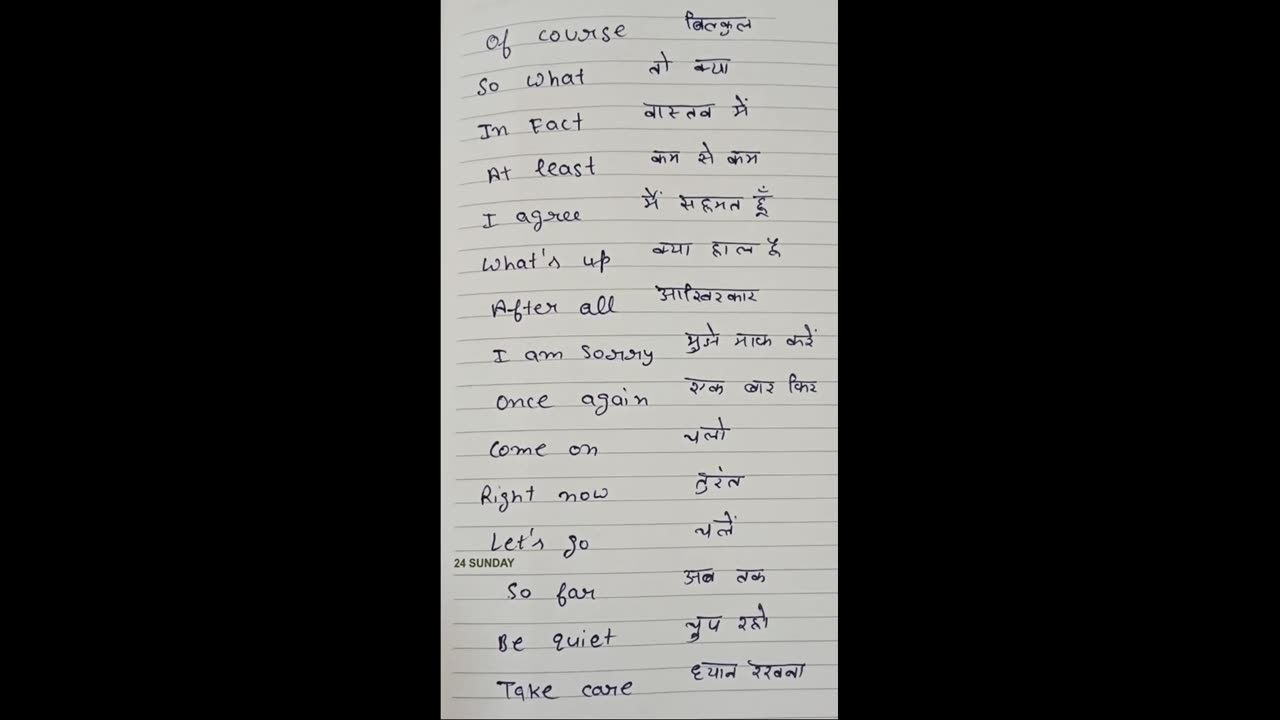 Of course बिलकुल
So what तो क्या
In Fact वास्तव में
At least कम से कम
I agree मैं सहमत हूँ
What's up क्या हाल है
After all आखिरकार
I am sorry मुझे माफ करें
Once again एक बार फिर
Come on चलो
Right now तुरंत
Let's go चलें
24 SUNDAY
So far अब तक
Be quiet चुप रहो
Take care ध्यान रखना